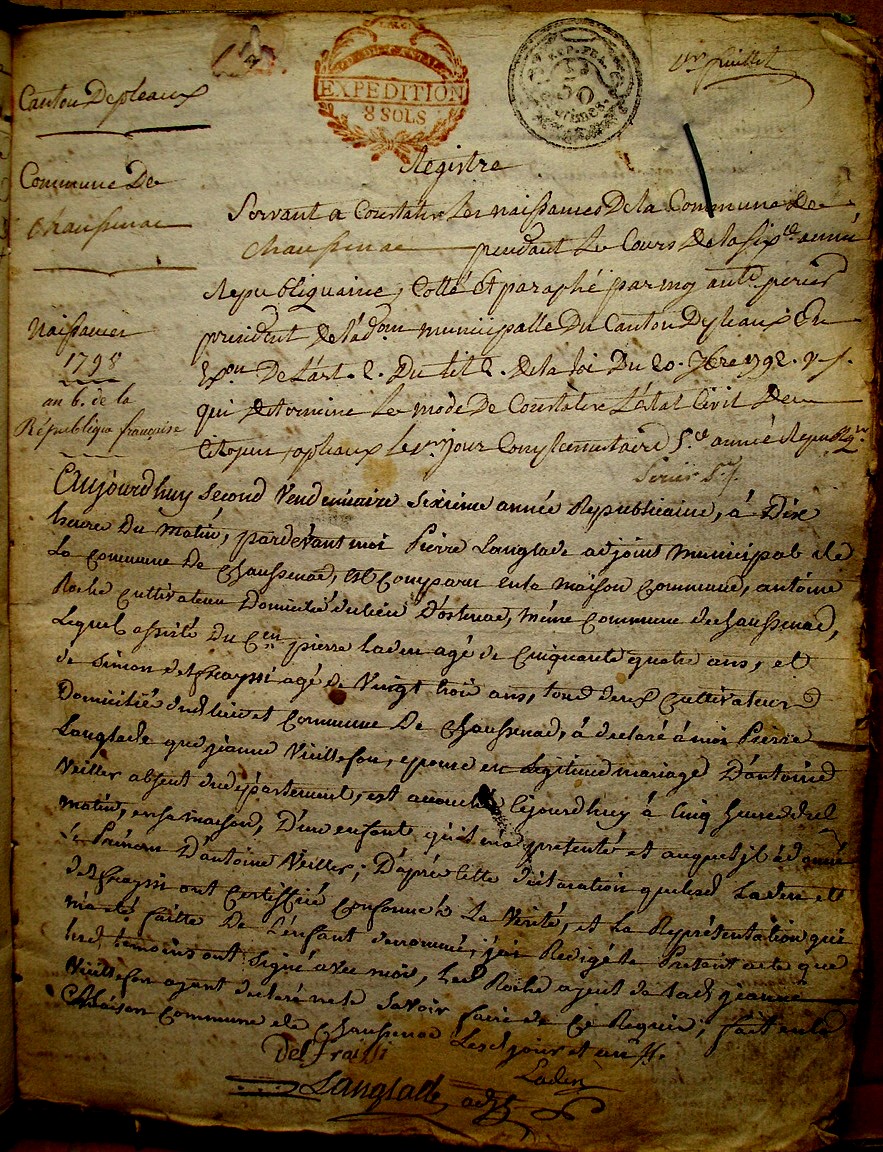 1er feuillet
EXPEDITION
8 SOLS
REP. FRA.
50
Canton De pleaux
Commune De
chaussenac
Naissances
1798
an 6. de la
République française
Registre
Servant a Constater Les naissances De la Commune de
chaussenac pendant Le Cours De la six.e année
Republiquaine, Cotté Et paraphé par moy ant.e perier
president de l'ad.on municipalle Du Canton De pleaux En
Exon De L'art. 2. Du tit. 2. de la loi Du 20. 7bre 1792. v. s.
qui determine Le mode De Constater L'état Civil De
Citoyen a pleaux Le jour Complementaire 5.e année Republiq.ne
Aujourd'huy second Vendemiaire sixieme année Republicaine, à Dix
heures Du matin, pardevant moi Pierre Langlade adjoint municipal de
La commune de chaussenac, est comparu en la maison commune, antoine
Roche cultivateur Domicilié du lieu D'ostenac, même commune de chaussenac,
Lequel assisté Du C.en pierre Laden agé de Cinquante quatre ans, et
de Simon delfraissi agé de Vingt trois ans, tous deux cultivateurs
Domiciliés dud. lieu et commune De chaussenac, à declaré à moi Pierre
Langlade que jeanne Vieillefon, epouse en Legitime mariage D'antoine
Veiller absent du departement, est accouchée Cejourd'huy à Cinq heures du
matin, en sa maison, D'un enfant qu'il m'a presenté et auquel il a donné
le Prénom D'antoine Veiller; D'après cette déclaration que lesd. Laden et
delfraysi ont certiffié conforme à La Vérité, et La Représentation qui
m'a été faitte De L'enfant denommé, j'ai Redigé le Présent acte que
lesd. temoins ont signé avec moi, led. Roche agent de lad. jeanne
Vieillefon ayant declaré ne le savoir faire de ce Requis; fait en la
Maison Commune de chaussenac Lesd. jour et an
Delfraissi
Laden
Langlade, adjt